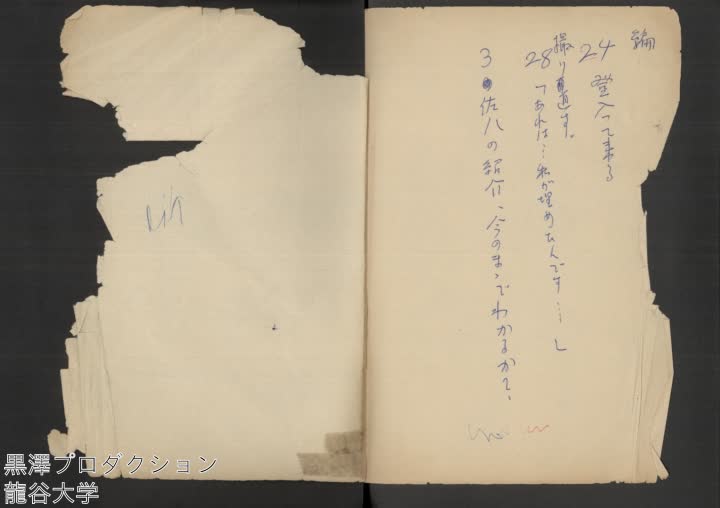 編
24 登入って来る
撮り直す。
28「あれは…私が埋めたんです…」
3 佐八の紹介、今のまゝでわかるかな、
黒澤プロダクション
龍谷大学